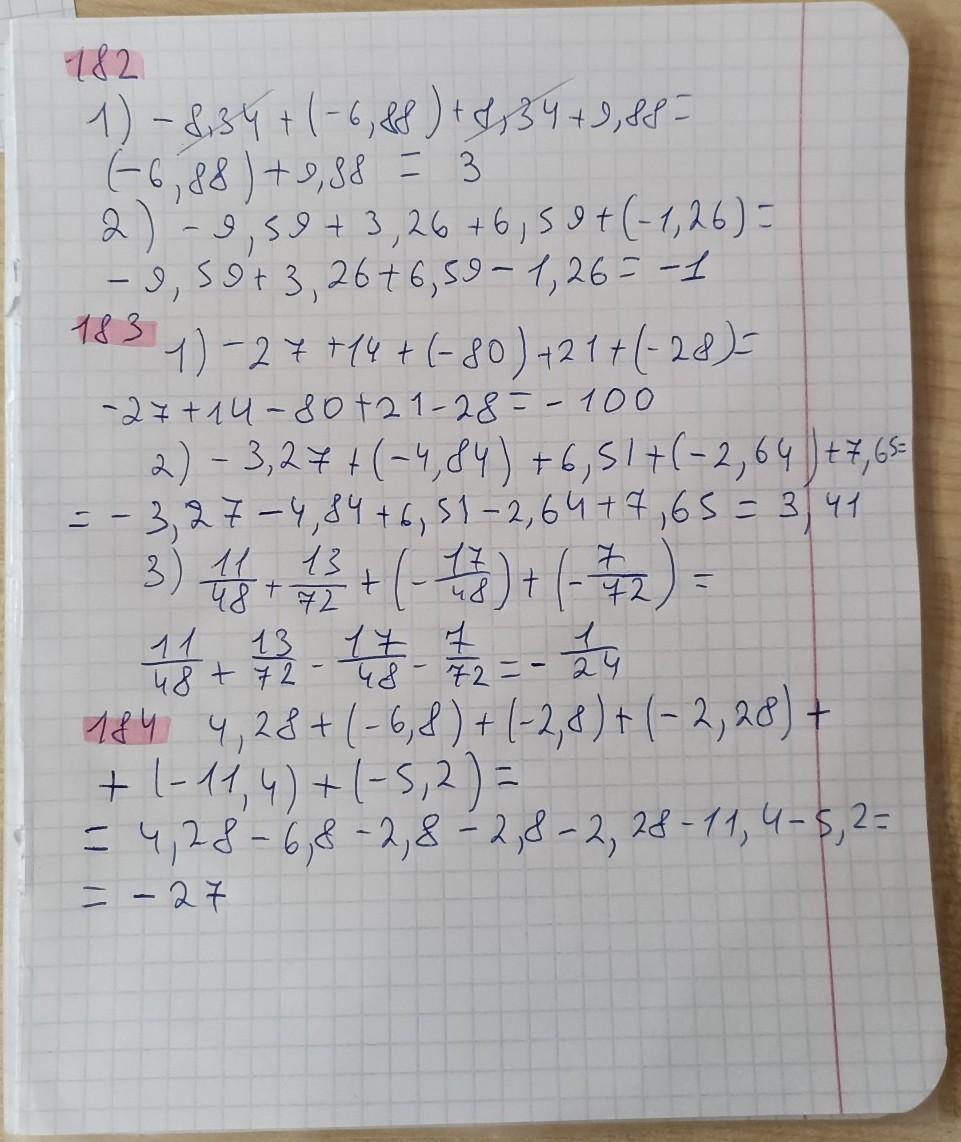 182
1) - 8,34 + (-6,88) + 8,34 + 9,88 =
(-6,88) + 9,88 = 3
2) - 9,59 + 3,26 + 6,59 + (-1,26) =
- 9,59 + 3,26 + 6,59 - 1,26 = -1
183 1) -27 + 14 + (-80) + 21 + (-28) =
-27 + 14 - 80 + 21 - 28 = - 100
2) - 3,27 + (-4,84) + 6,51 + (-2,64) + 7,65 =
= - 3,27 - 4,84 + 6,51 - 2,64 + 7,65 = 3,41
3) 11/48 + 13/72 + (- 17/48) + (- 7/72) =
11/48 + 13/72 - 17/48 - 7/72 = - 1/24
184 4,28 + (-6,8) + (-2,8) + (-2,28) +
+ (-11,4) + (-5,2) =
= 4,28 - 6,8 - 2,8 - 2,8 - 2,28 - 11,4 - 5,2 =
= - 27